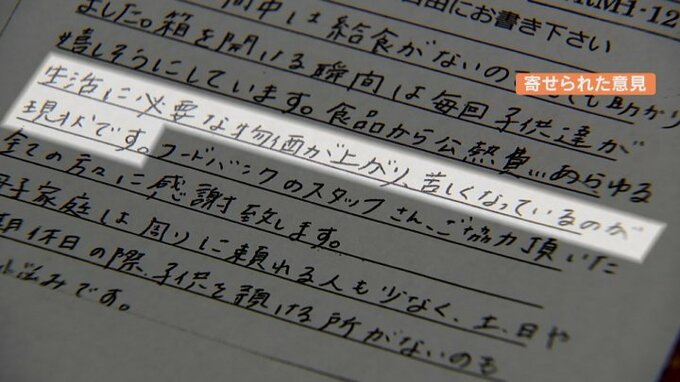 自由にお書き下さい
寄せられた意見
期中は給食がないの
ました。箱を開ける瞬間は毎回子供達が
嬉しそうにしています。食品から公熱費…あらゆる
生活に必要な物価が上がり、苦しくなっているのが
現状です。フードバンクのスタッフさん、ご協力頂いた
全ての方々に感謝致します。
母子家庭は周りに頼れる人も少なく、土、日や
期休日の際、子供を預ける所がないのも
悩みです。